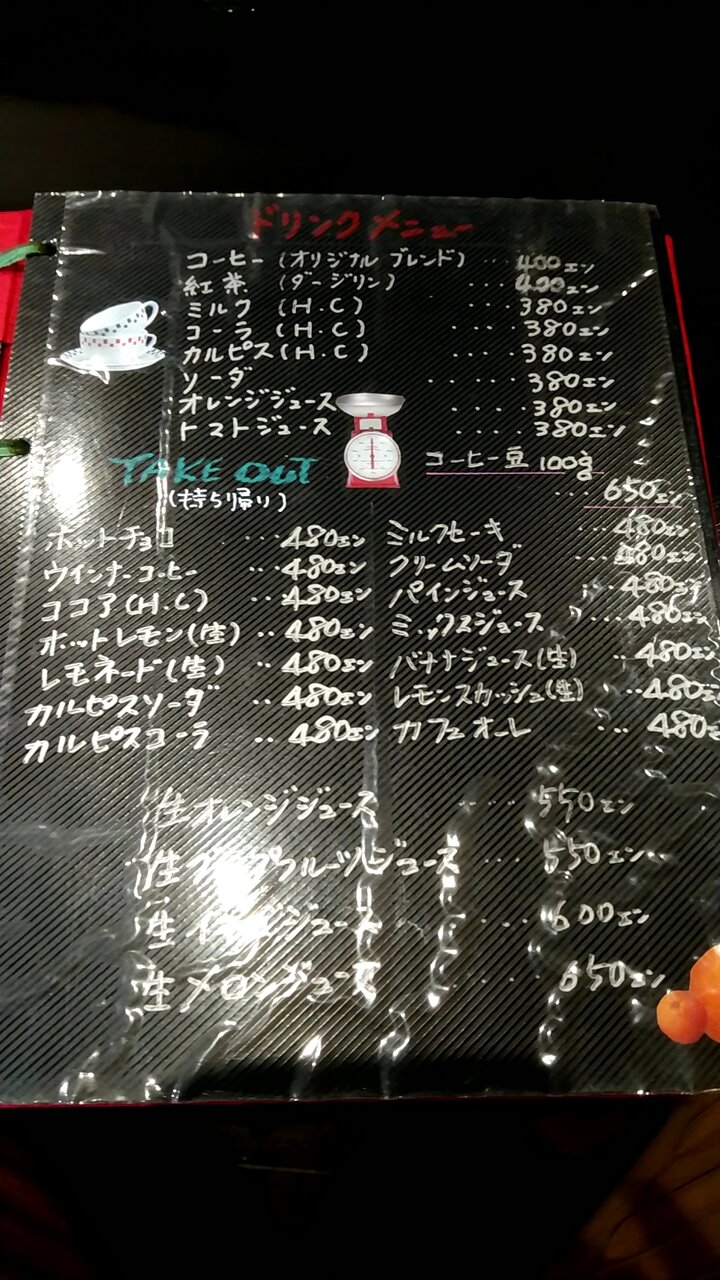 ドリンクメニュー
コーヒー(オリジナル ブレンド) ・・・ 400エン
紅茶 (ダージリン) ・・・ 400エン
ミルク (H.C) ・・・・ 380エン
コーラ (H.C) ・・・・ 380エン
カルピス(H.C) ・・・・ 380エン
ソーダ ・・・・・ 380エン
オレンジジュース ・・・・ 380エン
トマトジュース ・・・・ 380エン
TAKE OUT
(持ち帰り)
コーヒー豆 100g
・・・ 650エン
ホットチョコ ・・・480エン
ウインナーコーヒー ・・・480エン
ココア(H.C) ・・・480エン
ホットレモン(生) ・・480エン
レモネード(生) ・・480エン
カルピスソーダ ・・480エン
カルピスコーラ ・・480エン
ミルクセーキ ・・・480エン
クリームソーダ ・・・480エン
パインジュース ・・・480エン
ミックスジュース ・・・480エン
バナナジュース(生) ・・480エン
レモンスカッシュ(生) ・・480エン
カフェオーレ ・・・ 480エン
生オレンジジュース ・・・・ 550エン
生 フルーツジュース ・・・ 550エン
生 ジュース ・・・・ 600エン
生メロンジュース ・・・・ 650エン